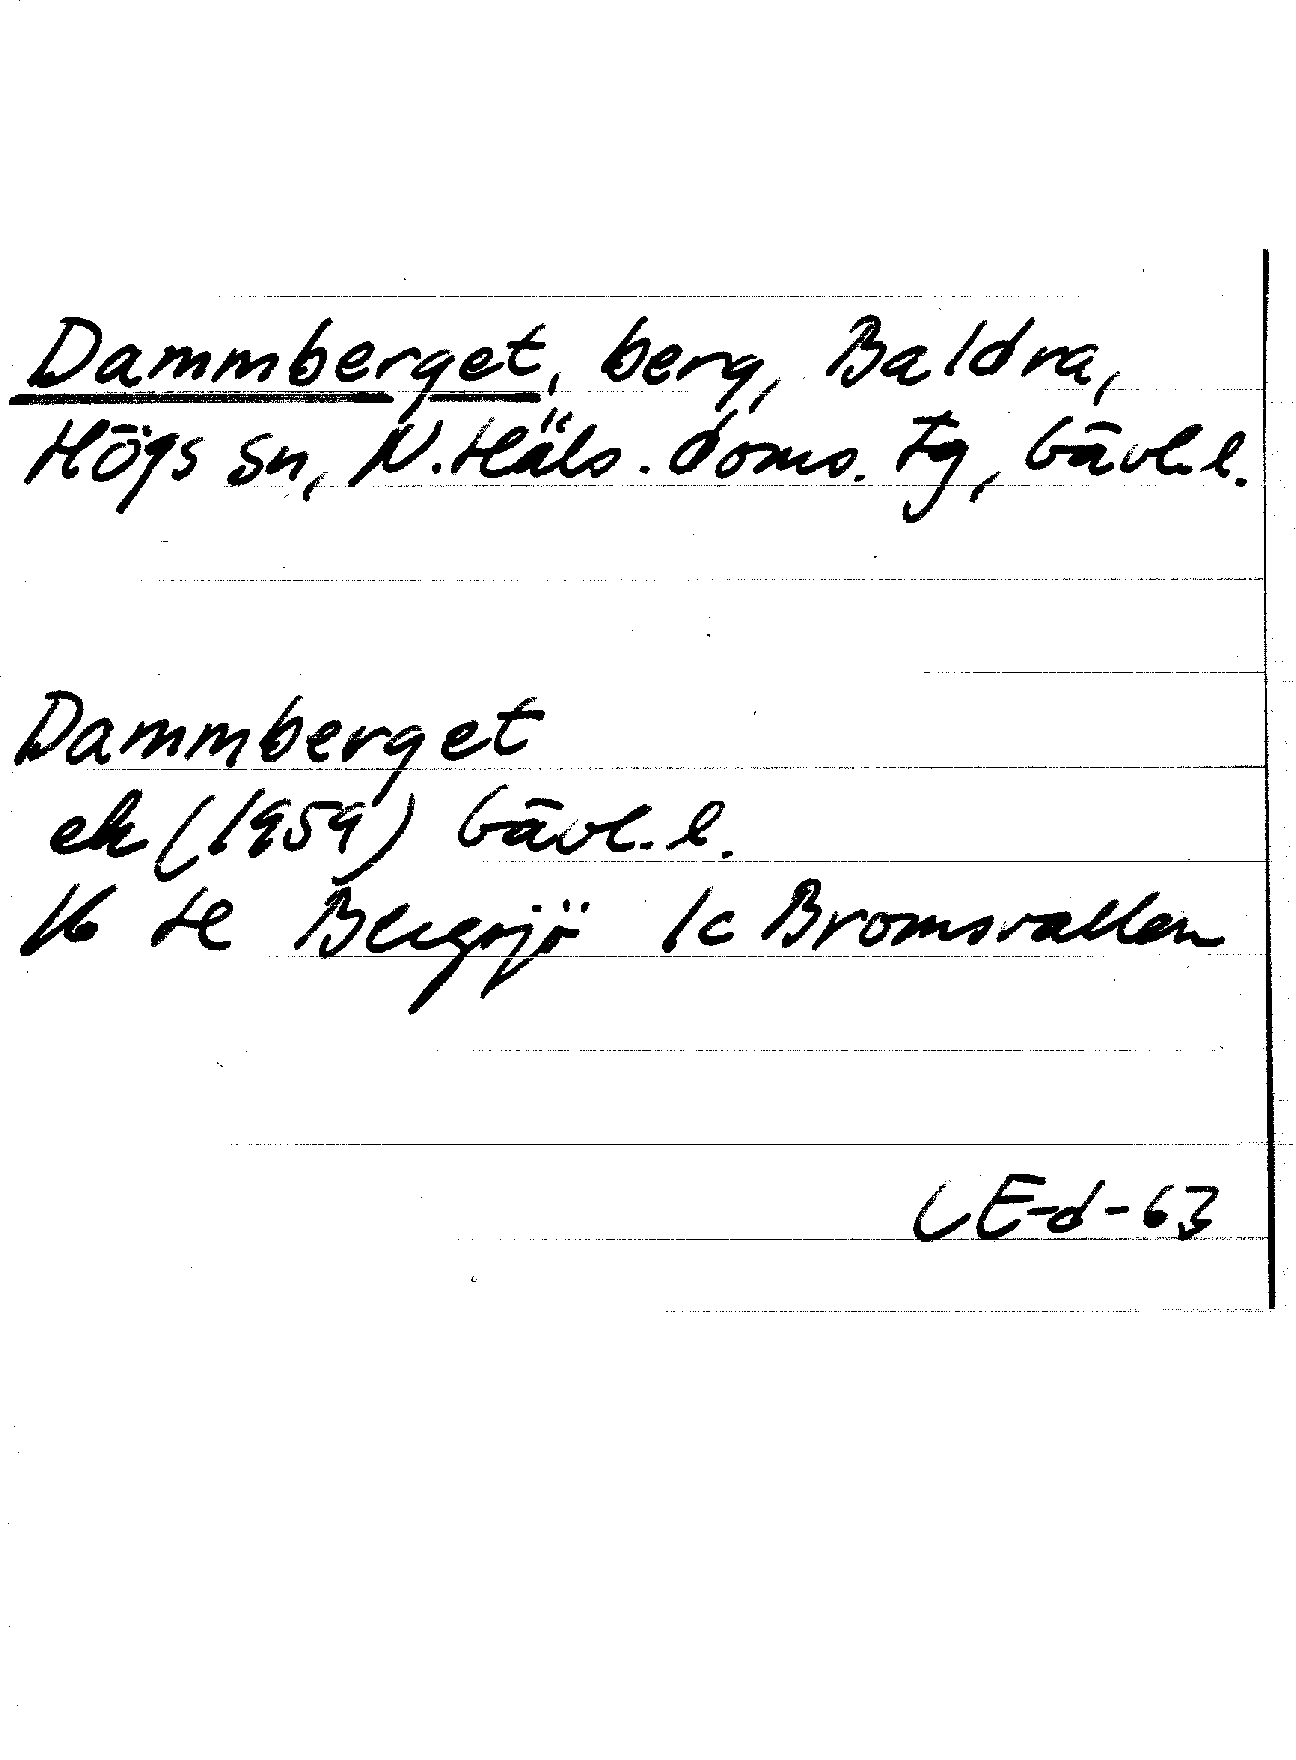 Dammberget, berg, Baldra,
Högs sn, N. Häls. doms. tg, Gävl. l.
Dammberget
ek (1959) Gävl. l.
16 H Bergsjö 1c Bromsvallen
CE-d-63